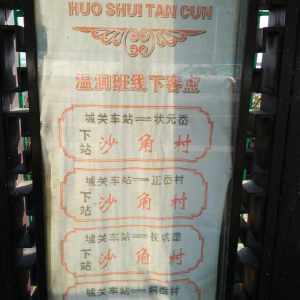 HUO SHUI TAN CUN
温潤班线下客点
城关车站 状元岙
下站 沙角村
城关车站 正岙村
下站 沙角村
城关车站
下站 沙角村
城关车站